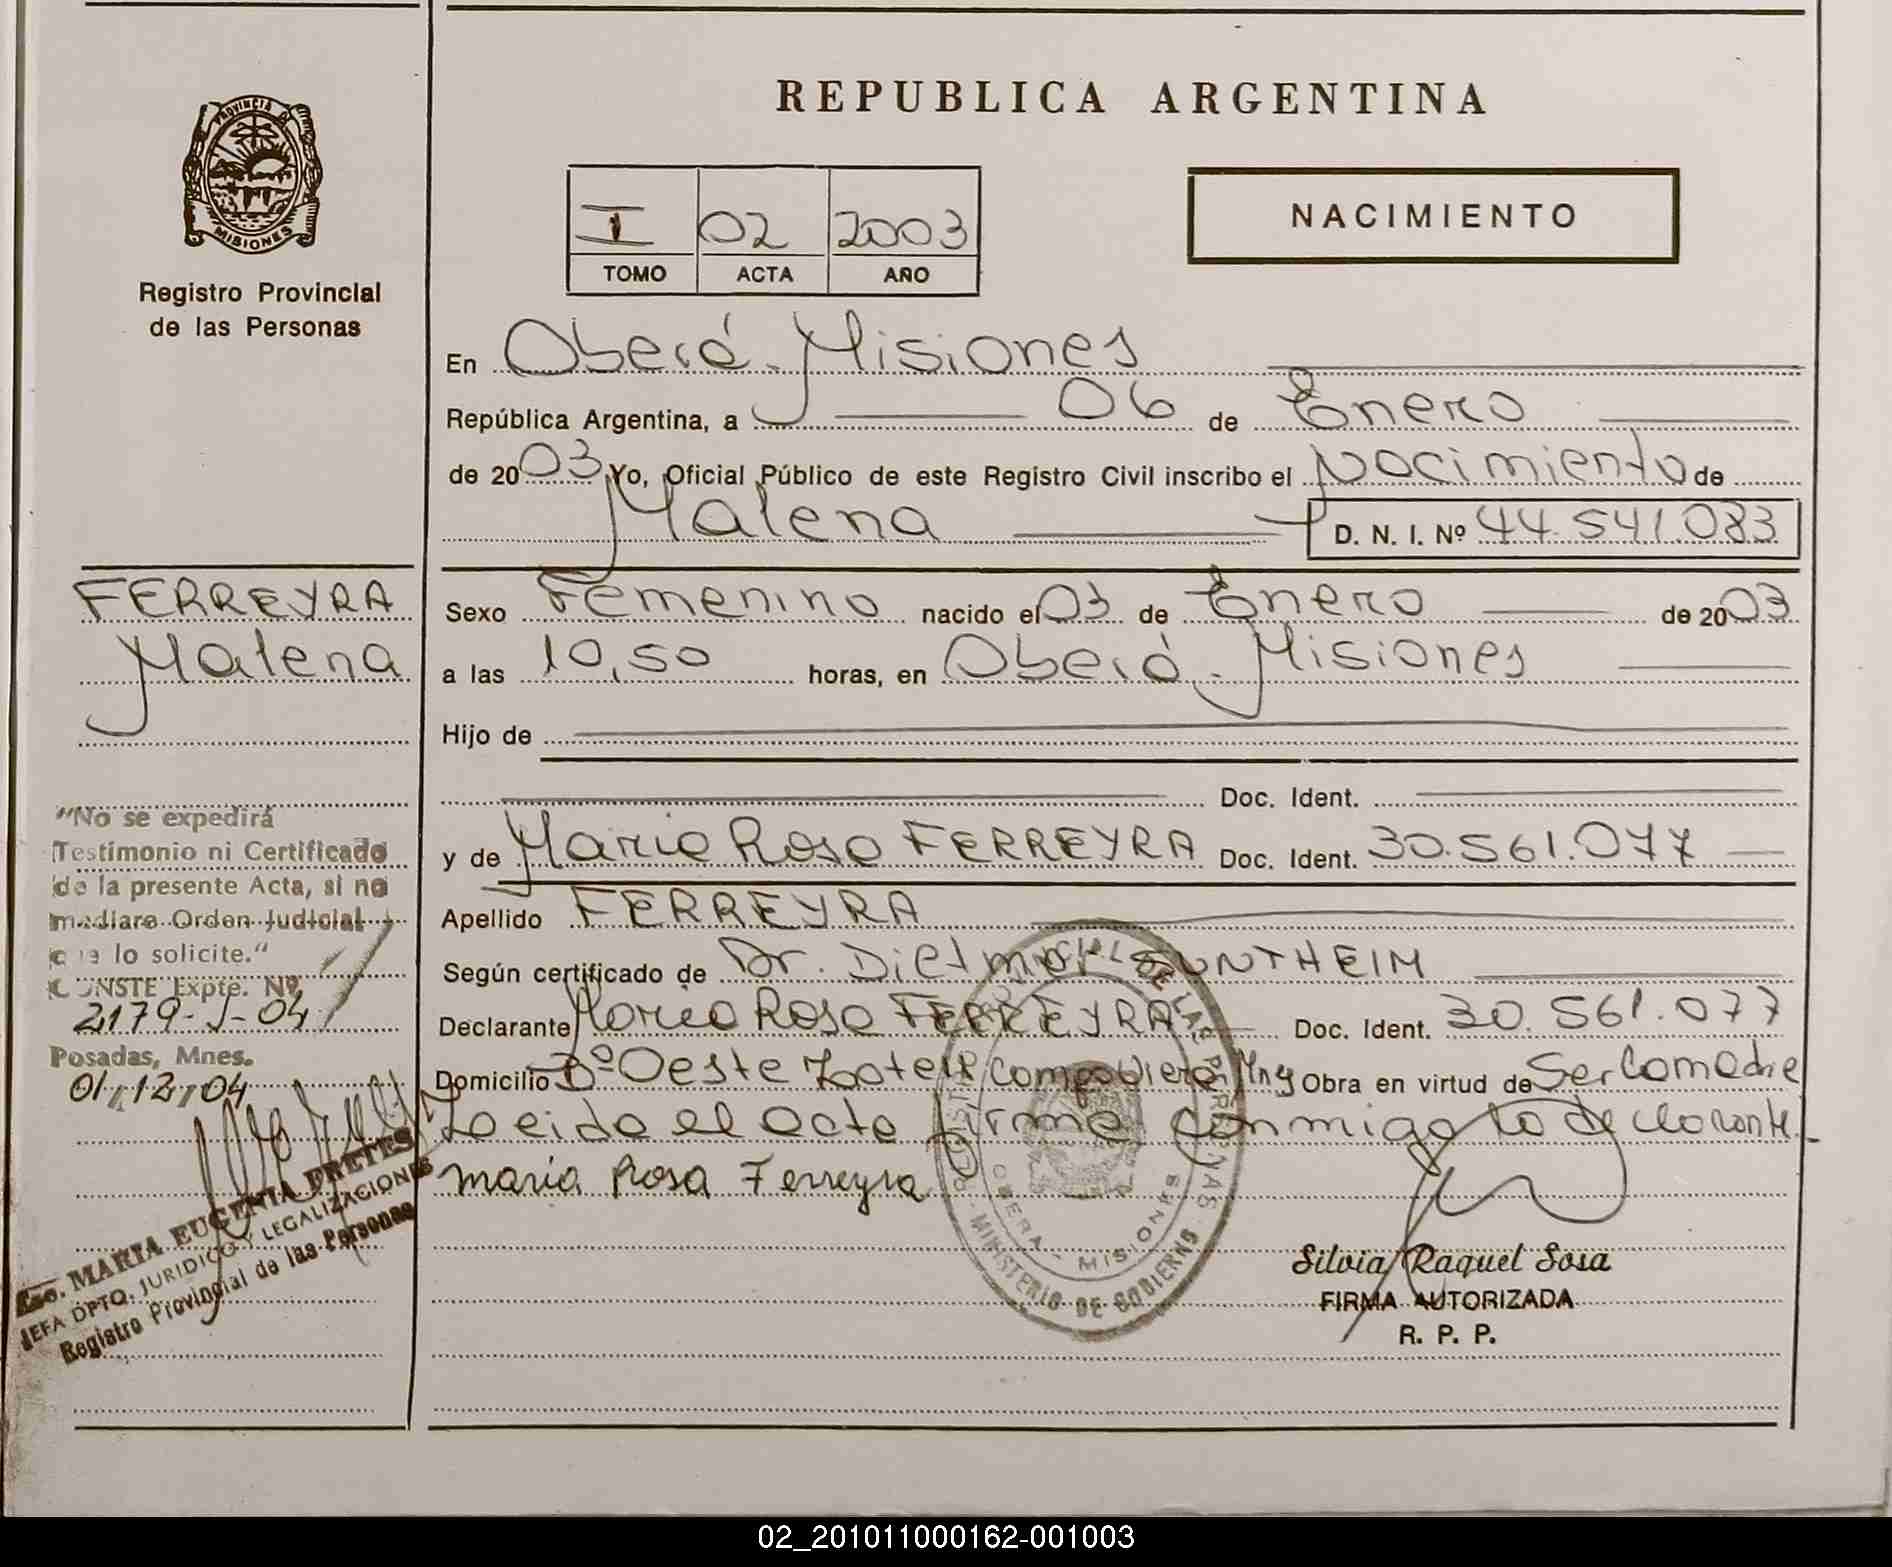 REPUBLICA ARGENTINA
PROVINCIA DE
MISIONES
Registro Provincial
de las Personas
I 02 2003
TOMO ACTA AÑO
NACIMIENTO
En Oberá - Misiones
República Argentina, a 06 de Enero
de 2003 Yo, Oficial Público de este Registro Civil inscribo el Nacimiento de
Malena D. N. I. Nº 44.541.083
FERREYRA
Malena
Sexo Femenino nacido el 03 de Enero de 2003
a las 10,50 horas, en Oberá - Misiones
Hijo de
Doc. Ident.
y de Maria Rosa FERREYRA Doc. Ident. 30.561.077
Apellido FERREYRA
Según certificado de Dr. Dietmar SUNTHEIM
Declarante Maria Rosa FERREYRA Doc. Ident. 30.561.077
Domicilio Bº Oeste Lote Campo Viera Mnes Obra en virtud de Ser la madre
Leida el acta firma conmigo la declarante.
maria Rosa Ferreyra
"No se expedirá
Testimonio ni Certificado
de la presente Acta, si no
mediare Orden Judicial
que lo solicite."
CONSTE Expte. Nº
2179-J-04
Posadas, Mnes.
01/12/04
Esc. MARIA EUGENIA FRETES
JEFA DPTO. JURIDICO Y LEGALIZACIONES
Registro Provincial de las Personas
OBERA - MISIONES
MINISTERIO DE GOBIERNO
Silvia Raquel Sosa
FIRMA AUTORIZADA
R. P. P.
02_201011000162-001003